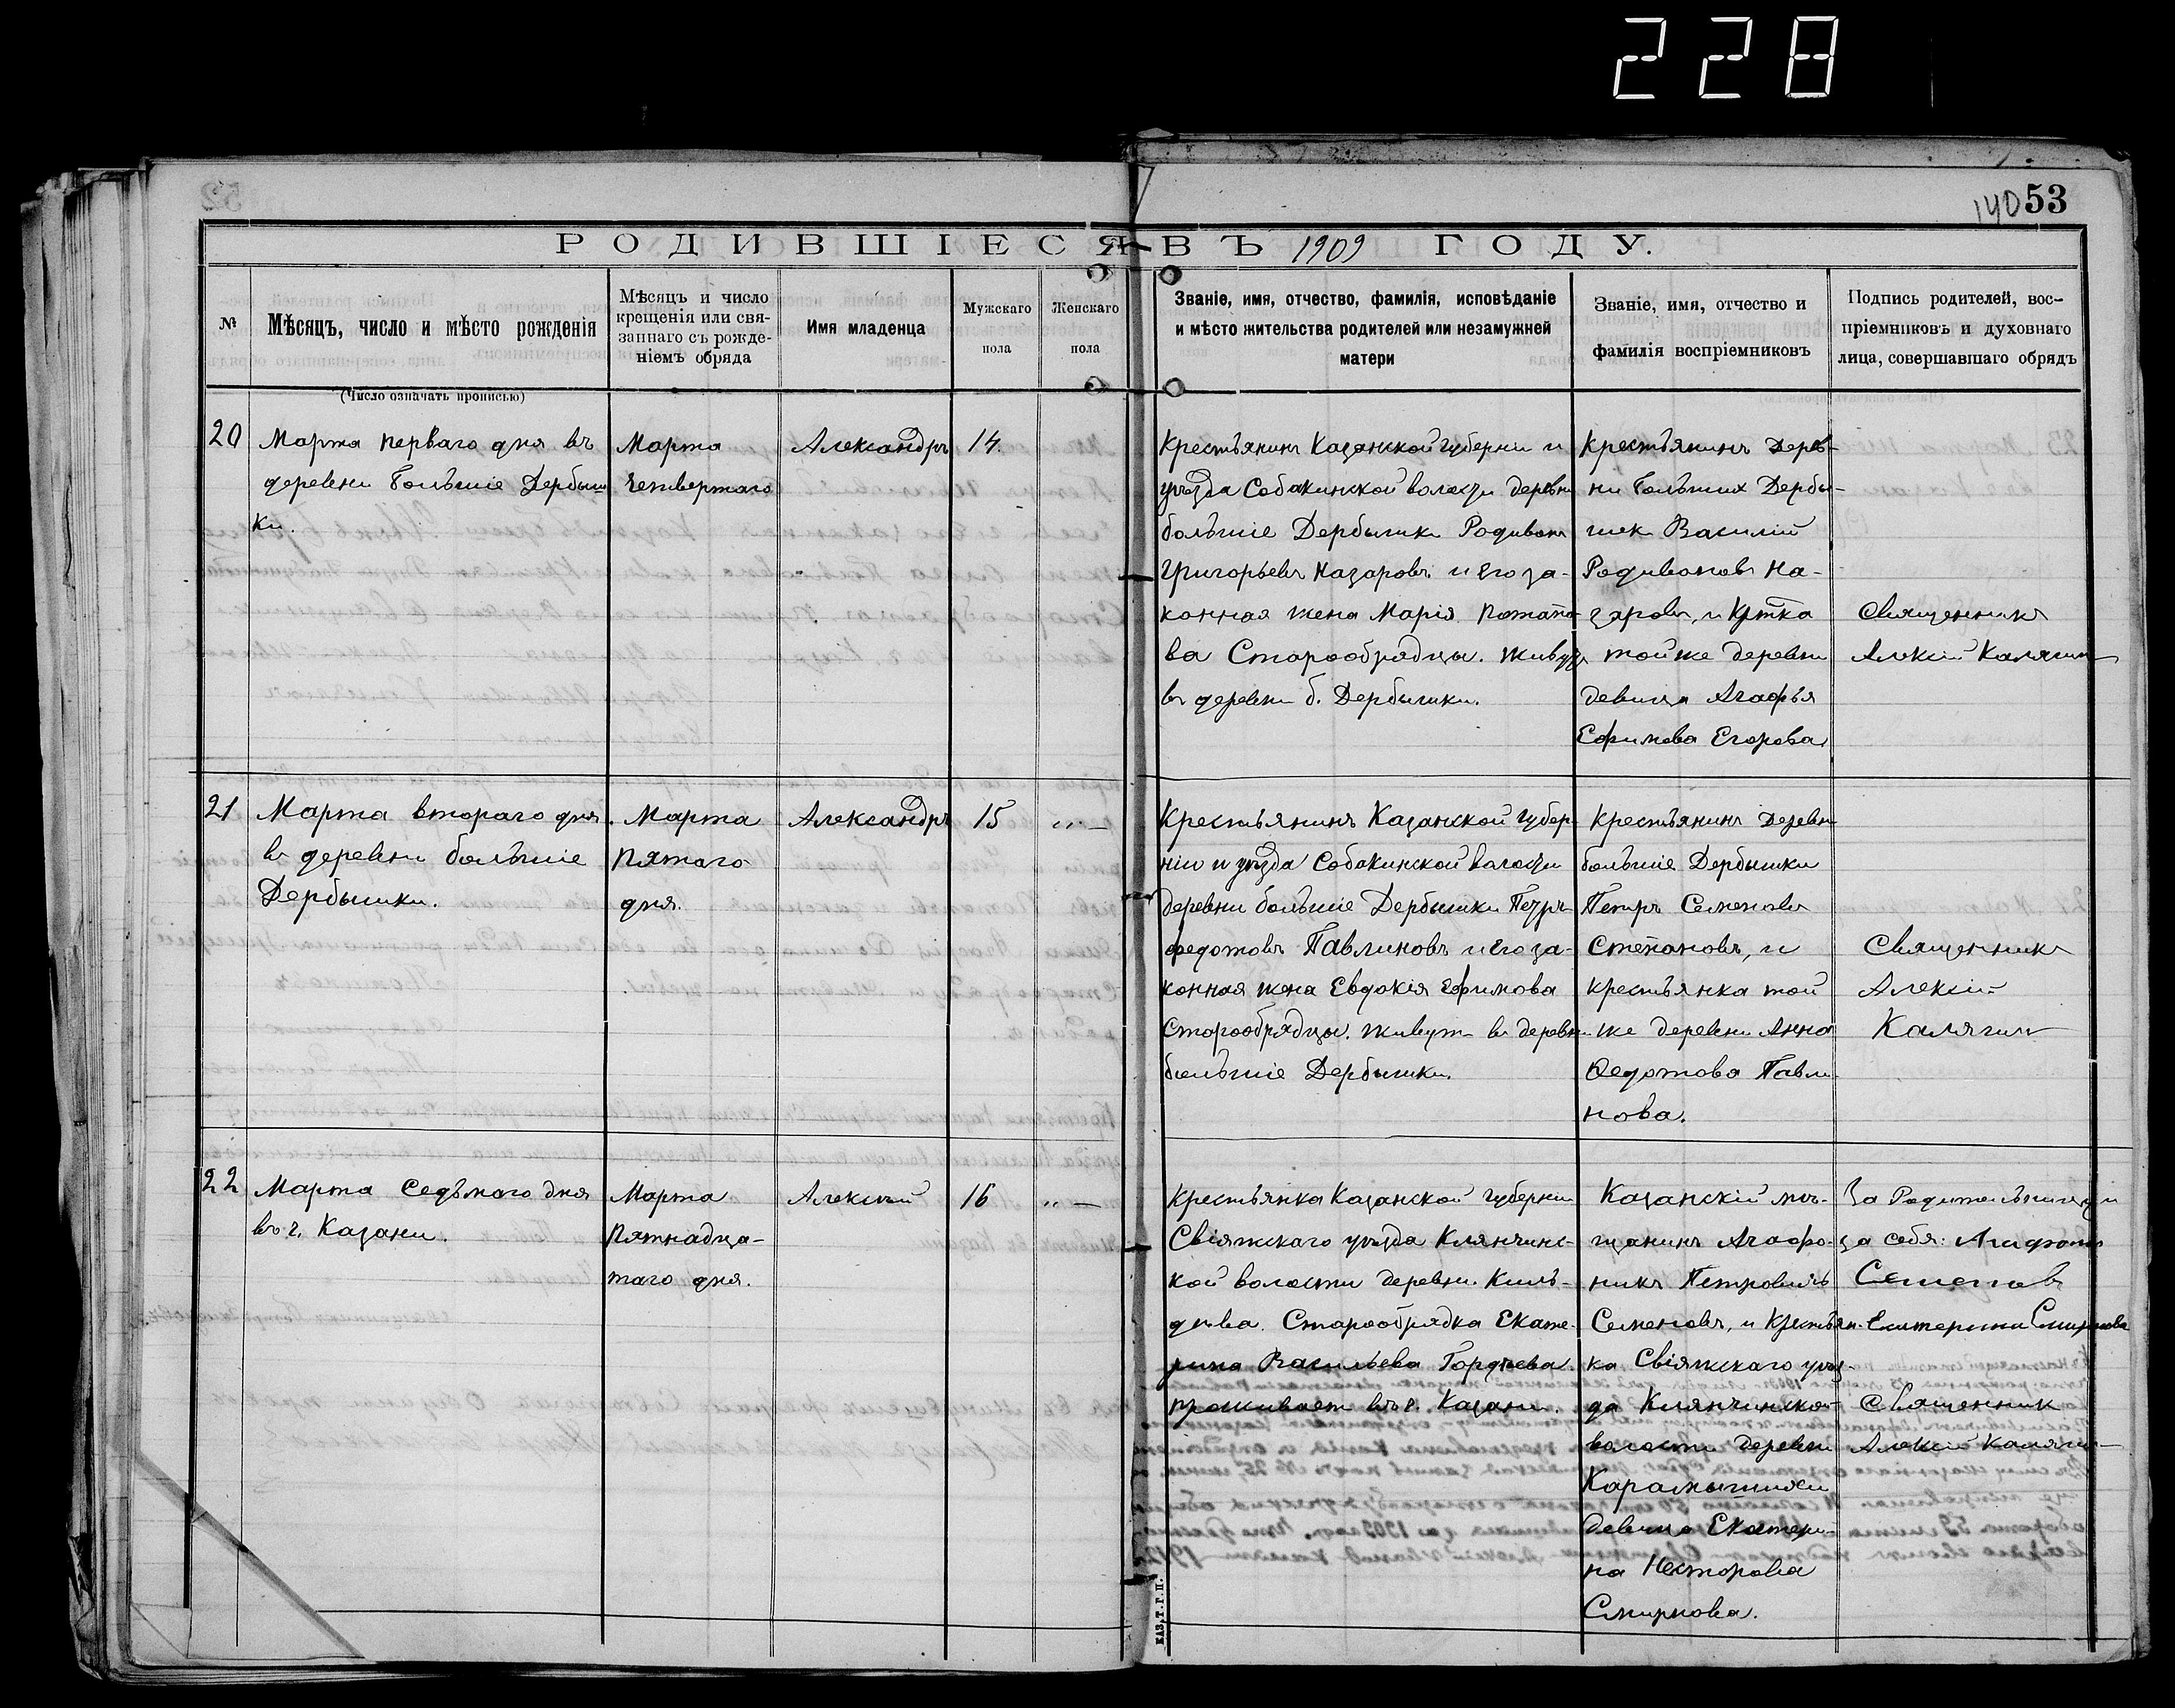 228
140 53
РОДИВШІЕСЯ ВЪ 1909 ГОДУ.
№
Мѣсяцъ, число и мѣсто рожденія
Мѣсяцъ и число
крещенія или свя-
заннаго съ рожде-
ніемъ обряда
Имя младенца
Мужскаго
пола
Женскаго
пола
Званіе, имя, отчество, фамилія, исповѣданіе
и мѣсто жительства родителей или незамужней
матери
Званіе, имя, отчество и
фамилія воспріемниковъ
Подпись родителей, вос-
пріемниковъ и духовнаго
лица, совершавшаго обрядъ
(Число означать прописью)
20
Марта перваго дня въ
деревни Большіе Дербыш
ки.
Марта
Четвертаго
Александръ
14.
Крестьянинъ Казанской губерніи и
уѣзда Собакинской волости деревни
большіе Дербышки Родивонъ
Григорьевъ Назаровъ и его за-
конная жена Марія Потапо-
ва Старообрядцы. живут
въ деревни б. Дербышки.
Крестьянинъ Дерев-
ни Большихъ Дербы-
шек Василій
Родивоновъ На-
заровъ, и Кртка
тойже деревни
девица Агафья
Ефимова Егорова
Священникъ
Алексій Калягинъ
21
Марта втораго дня
въ деревни большіе
Дербышки.
Марта
Пятаго
дня.
Александръ
15
„ —
Крестьянинъ Казанской губер-
ніи и уѣзда Собакинской волости
деревни большіе Дербышки Петръ
федотовъ Павлиновъ и его за-
конная жена Евдокія Ефимова
Старообрядцы. живут въ деревни
большіе Дербышки.
Крестьянинъ Деревн
большіе Дербышки
Петръ Семеновъ
Степановъ, и
крестьянка той
же деревни Анна
Федотова Павли
нова.
Священникъ
Алексій
Калягинъ
22
Марта Седьмаго дня
въ г. Казани.
Марта
Пятнадца-
таго дня.
Алексѣй
16
„ —
Крестьянка Казанской губерніи
Свіяжскаго уѣзда Клянчинс-
кой волости деревни Киль-
дѣева. Старообрядка Екате-
рина Васильева Гордѣева
проживает въ г. Казани.
Казанскій мѣ-
щанинъ Агафо-
никъ Петровичъ
Семеновъ, и Крестьян-
ка Свіяжскаго уѣз-
да Клянчинской
волости деревни
Карамышихи
девица Екатери-
на Несторова
Смирнова.
За Родительницу и
за себя: Агафоникъ
Семеновъ
Екатерина Смирнова
Священник
Алексій Калягинъ
КАЗ. Т. Г. П.